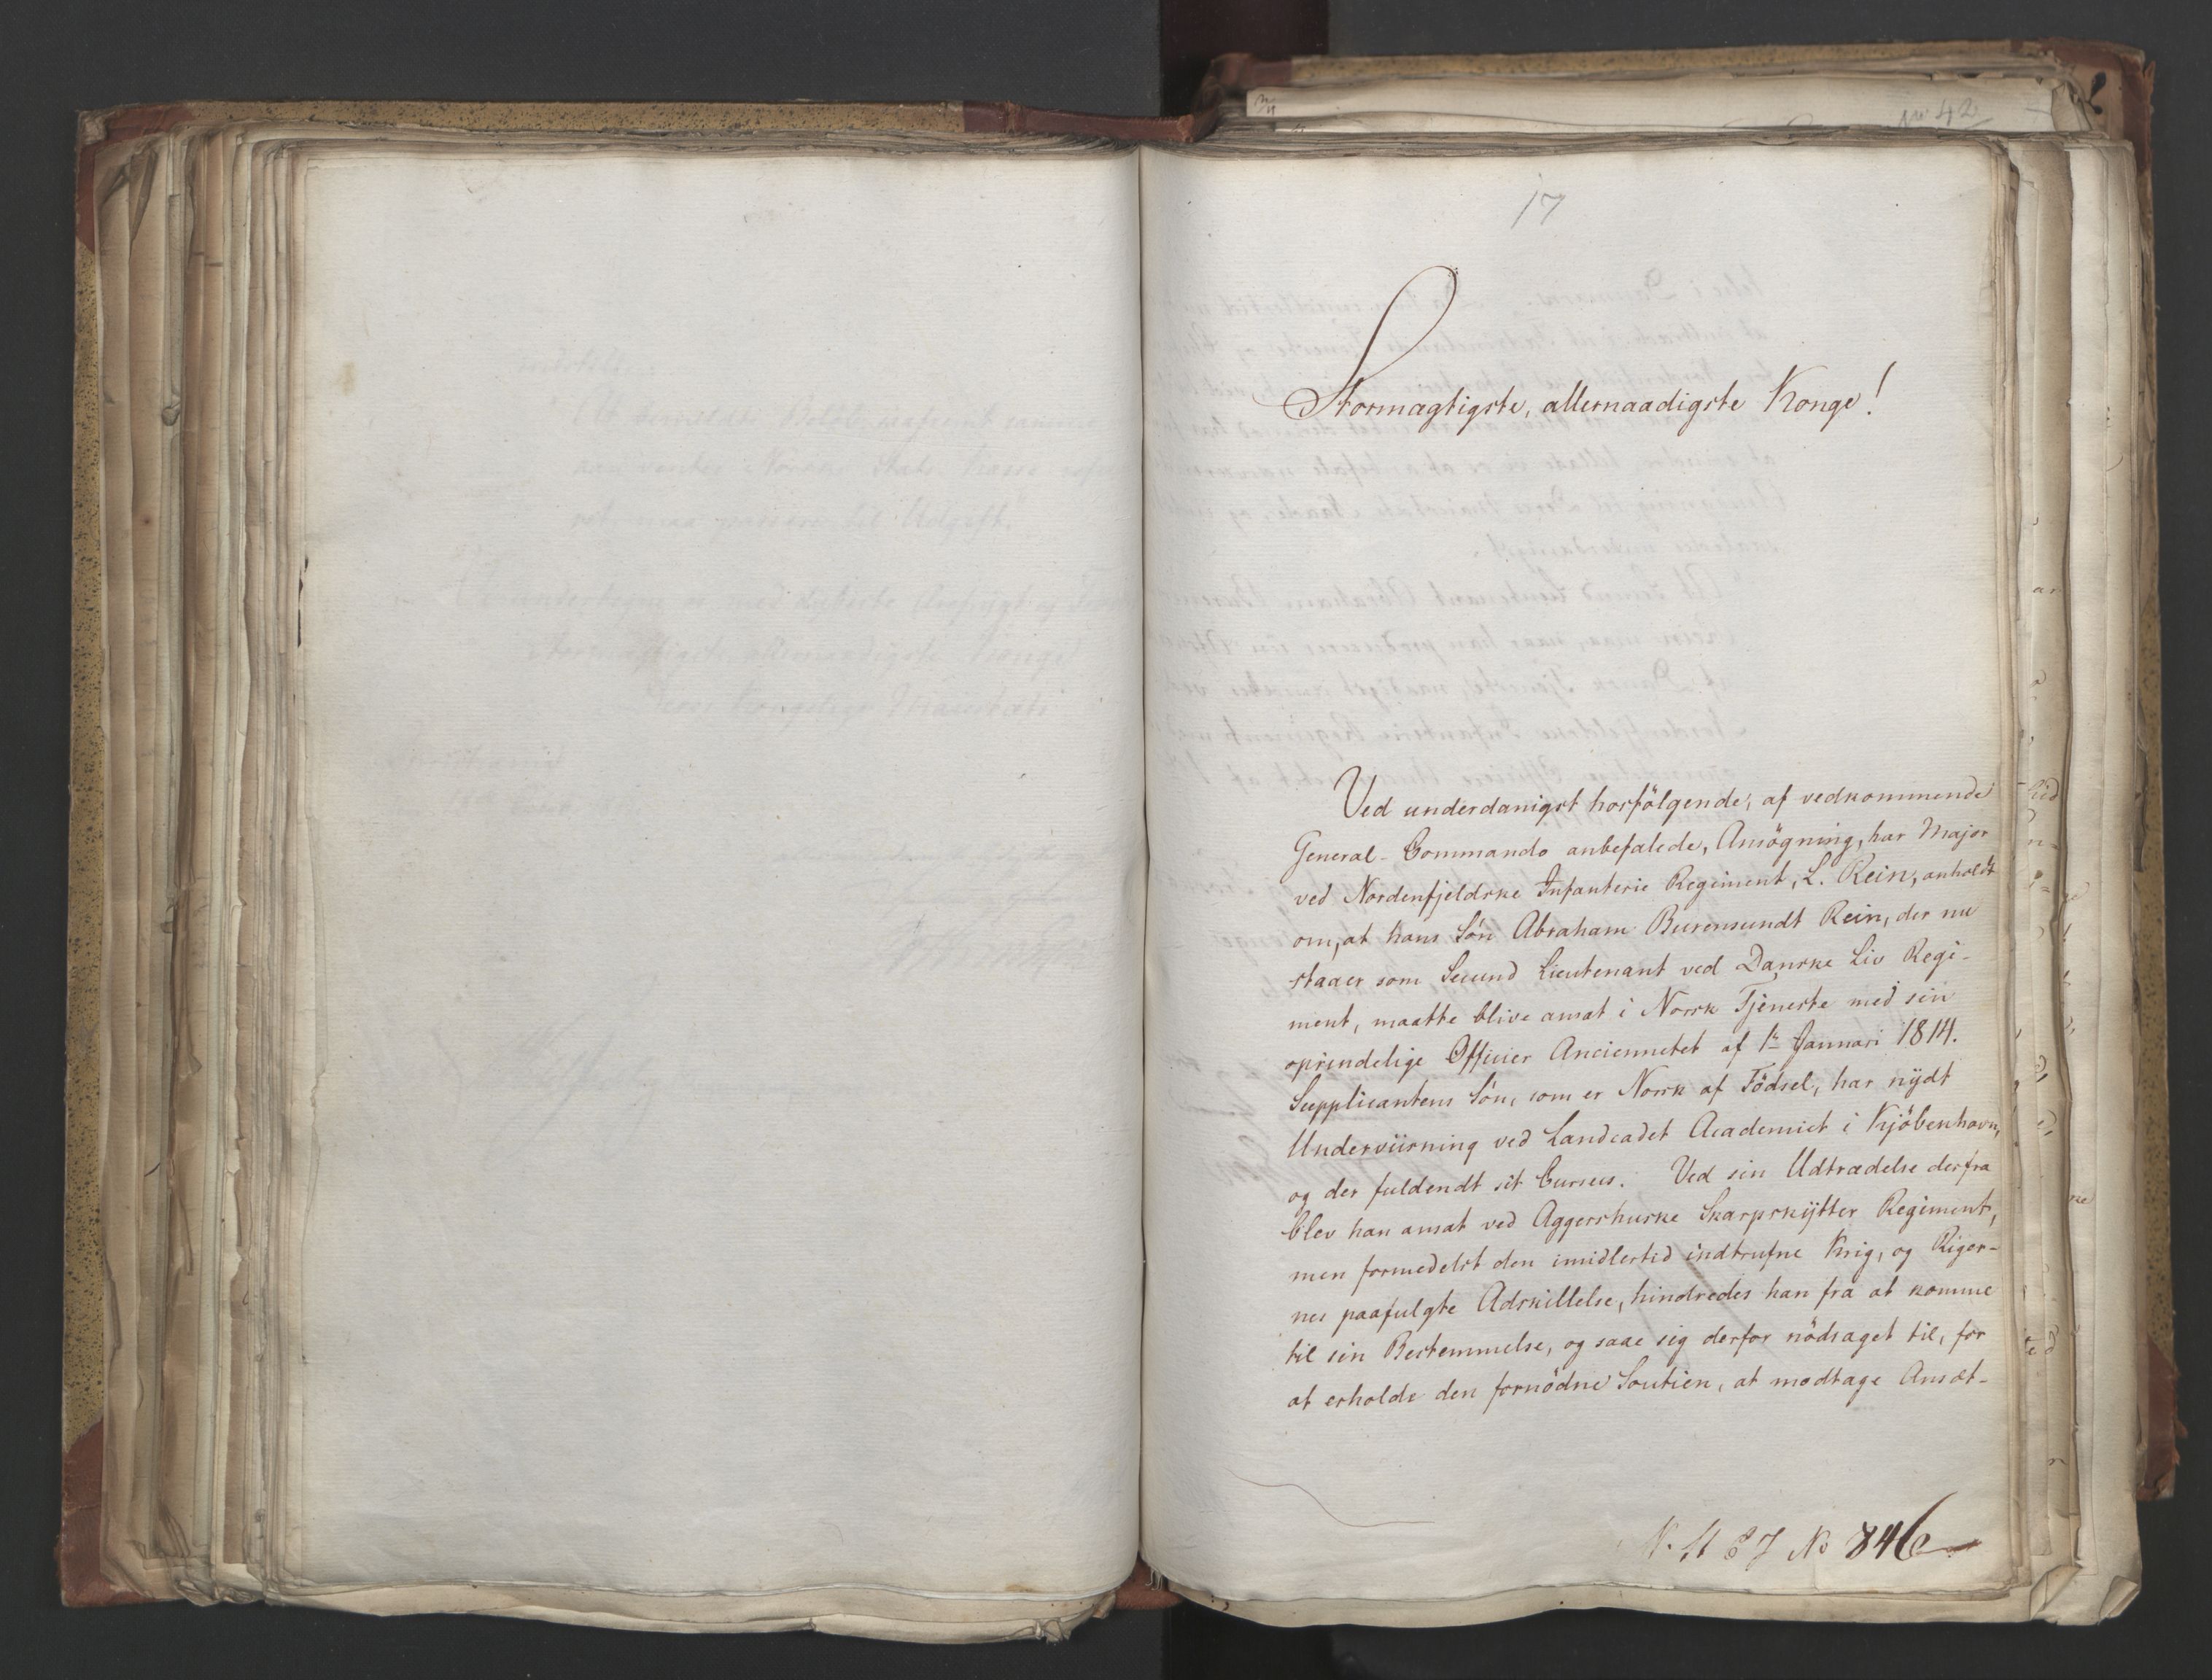 17
Stormagtigste, allernaadigste Konge!
Ved underdanigst hosfölgende, af vedkommende
General-Commando anbefalede, Ansögning, har Major
ved Nordenfjeldske Infanterie Regiment, L. Rein, anholdt
om, at hans Sön Abraham Burensundt Rein, der nu
staaer som Secund Lieutenant ved Danske Liv Regi-
ment, maatte blive ansat i Norsk Tjeneste med sin
oprindelige Officier Anciennetet af 1ste Januari 1814.
Supplicantens Sön, som er Norsk af Födsel, har nydt
Underviisning ved Landcadet Academiet i Kjöbenhavn,
og der fuldendt sit Cursus. Ved sin Udtrædelse derfra
blev han ansat ved Aggershuske Skarpskytter Regiment,
men formedelst den imidlertid indtrufne Krig, og Riger-
nes paafulgte Adskillelse, hindredes han fra at komme
til sin Bestemmelse, og saae sig derfor nödsaget til, for
at erholde den fornödne Soutien, at modtage Ansæt-
No 846
No 42